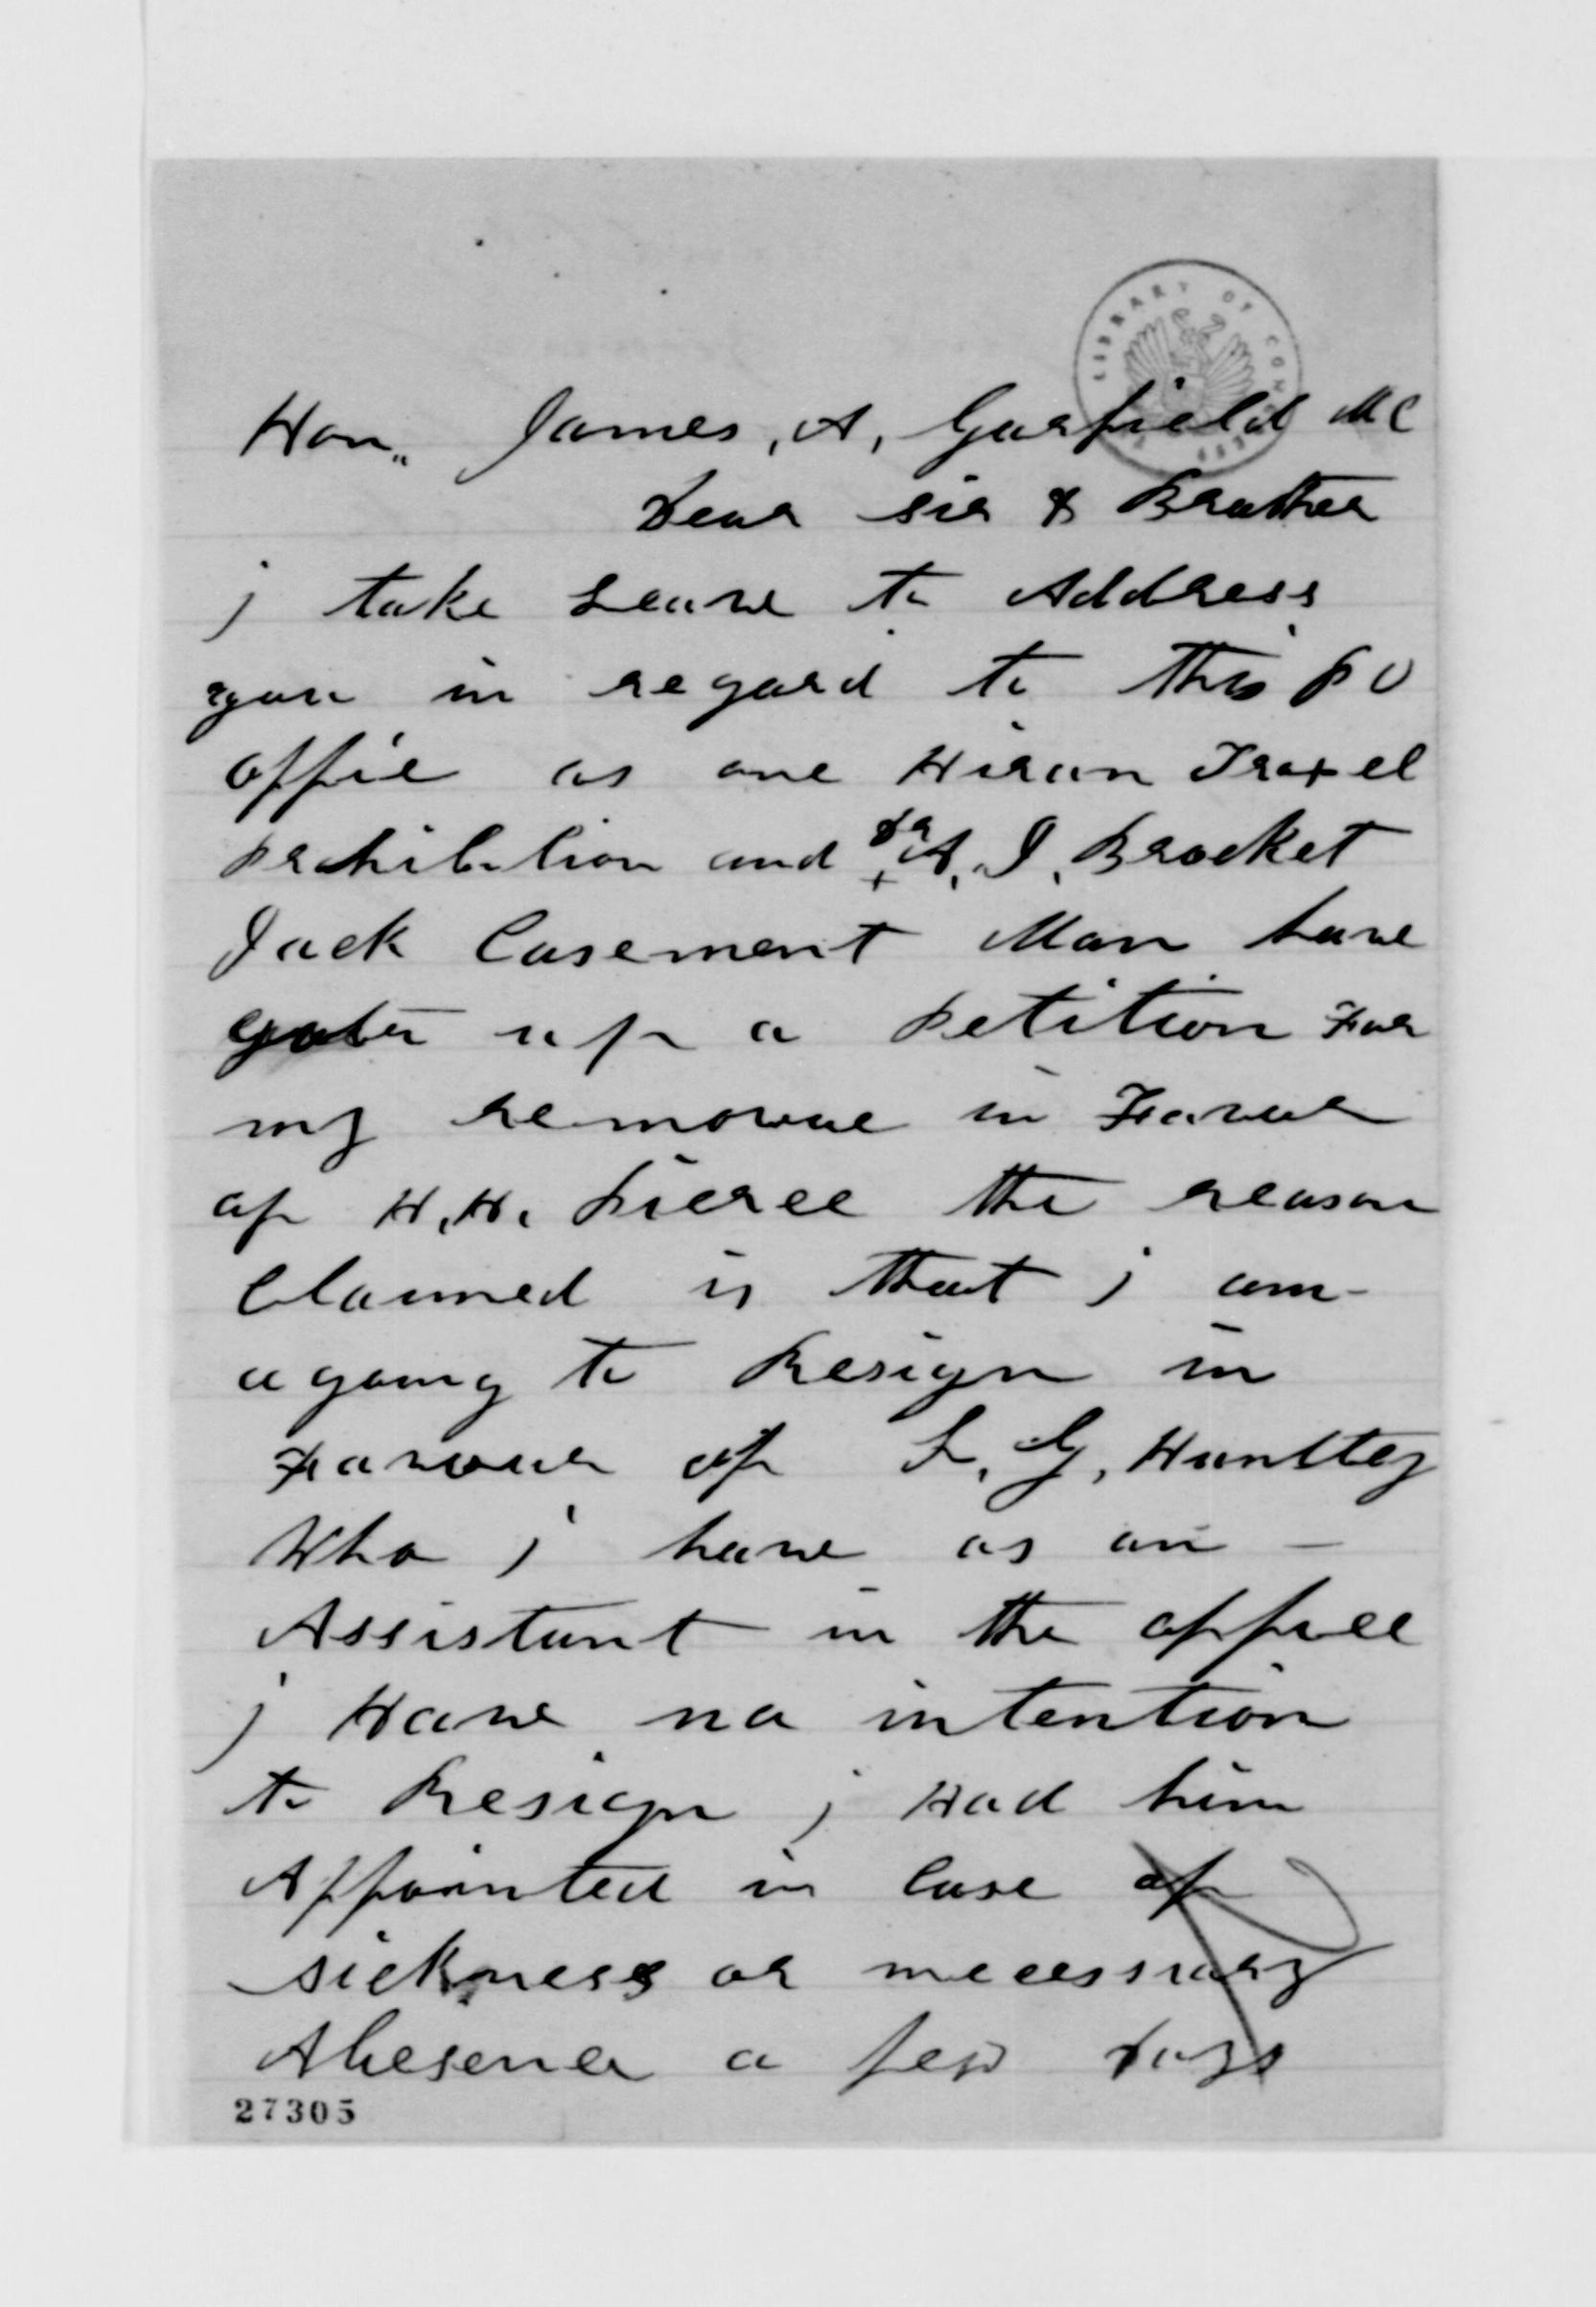 Hon,, James, A, Garfield MC
Dear Sir & Brother
j take Leave to Address
you in regard to this PO
offie as one Hiram Traxel
prohibition and Dr A, J, Brocket
Jack Casement Man have
goten up a Petition For
my removue in Favour
of H, H, Pierce the reason
Claimed is that j am
agoing to Resign in
Favour of L, G, Huntley
Who j have as an
Assistant in the office
j Have no intention
to Resign j Had him
Appointed in Case of
sickness or necessary
Abesence a few days
27305
LIBRARY OF CONGRESS